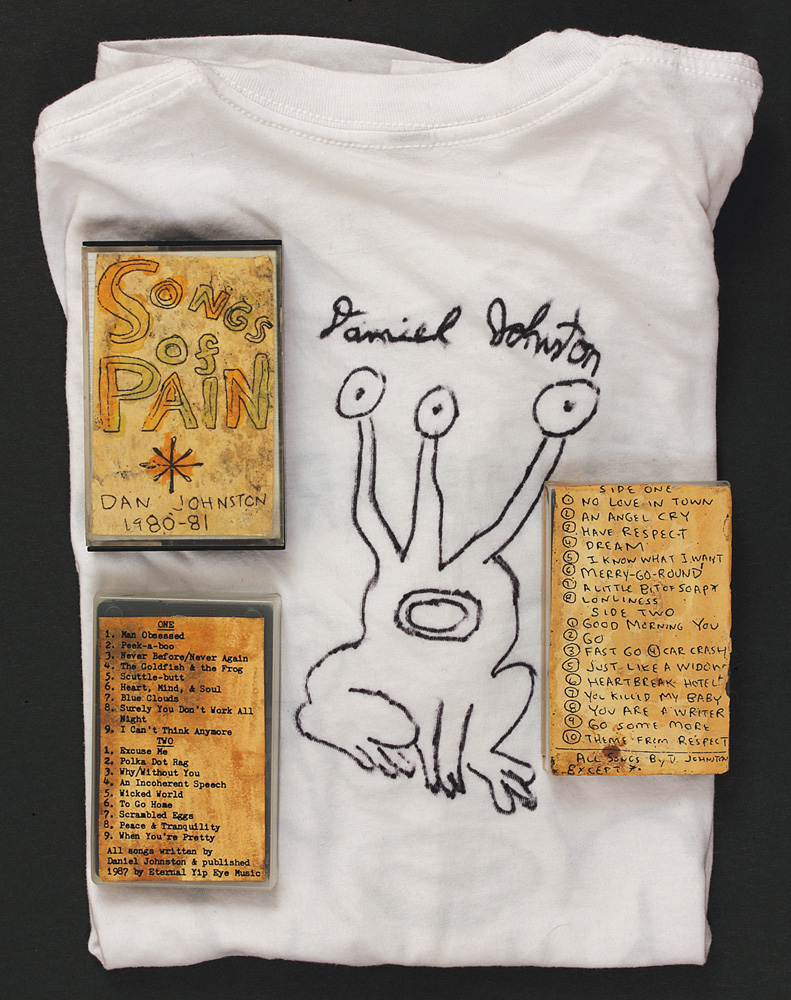 Daniel Johnston
SONGS
OF
PAIN
DAN JOHNSTON
1980-81
SIDE ONE
① NO LOVE IN TOWN
② AN ANGEL CRY
③ HAVE RESPECT
④ DREAM
⑤ I KNOW WHAT I WANT
⑥ MERRY-GO-ROUND
⑦ A LITTLE BIT OF SOAP*
⑧ LONLINESS
SIDE TWO
① GOOD MORNING YOU
② GO
③ FAST GO ④ CAR CRASH
⑤ JUST LIKE A WIDOW
⑥ HEARTBREAK HOTEL*
⑦ YOU KILLED MY BABY
⑧ YOU ARE A WRITER
⑨ GO SOME MORE
⑩ THEME FROM RESPECT
ALL SONGS BY D. JOHNSTON
EXCEPT *.
ONE
1. Man Obsessed
2. Peek-a-boo
3. Never Before/Never Again
4. The Goldfish & the Frog
5. Scuttle-butt
6. Heart, Mind, & Soul
7. Blue Clouds
8. Surely You Don't Work All
Night
9. I Can't Think Anymore
TWO
1, Excuse Me
2. Polka Dot Rag
3. Why/Without You
4. An Incoherent Speech
5. Wicked World
6. To Go Home
7. Scrambled Eggs
8. Peace & Tranquility
9. When You're Pretty
All songs written by
Daniel Johnston & published
1987 by Eternal Yip Eye Music